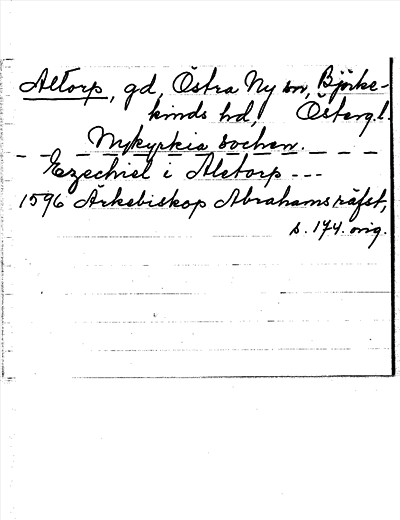 Altorp, gd, Östra Ny sn, Björke-
kinds hd, Östergl.
Nykyrkia sochen.
Ezechiel i Aletorp ---
1596 Ärkebiskop Abrahams räfst,
s. 174. orig.